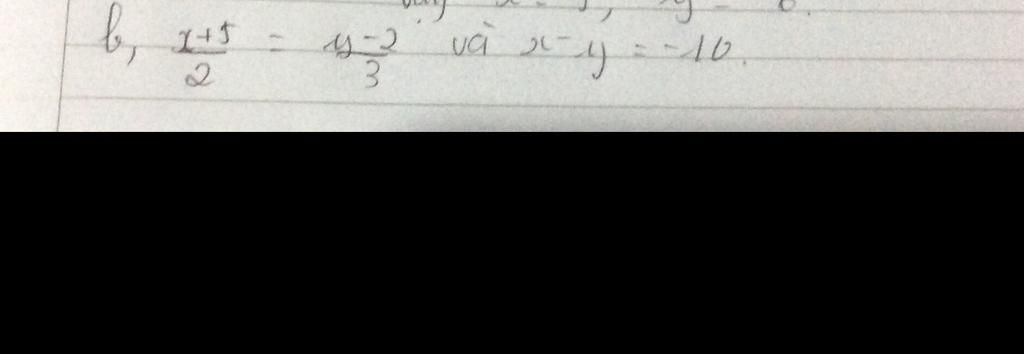 b, x+5/2 = y-2/3 và x-y = -10.